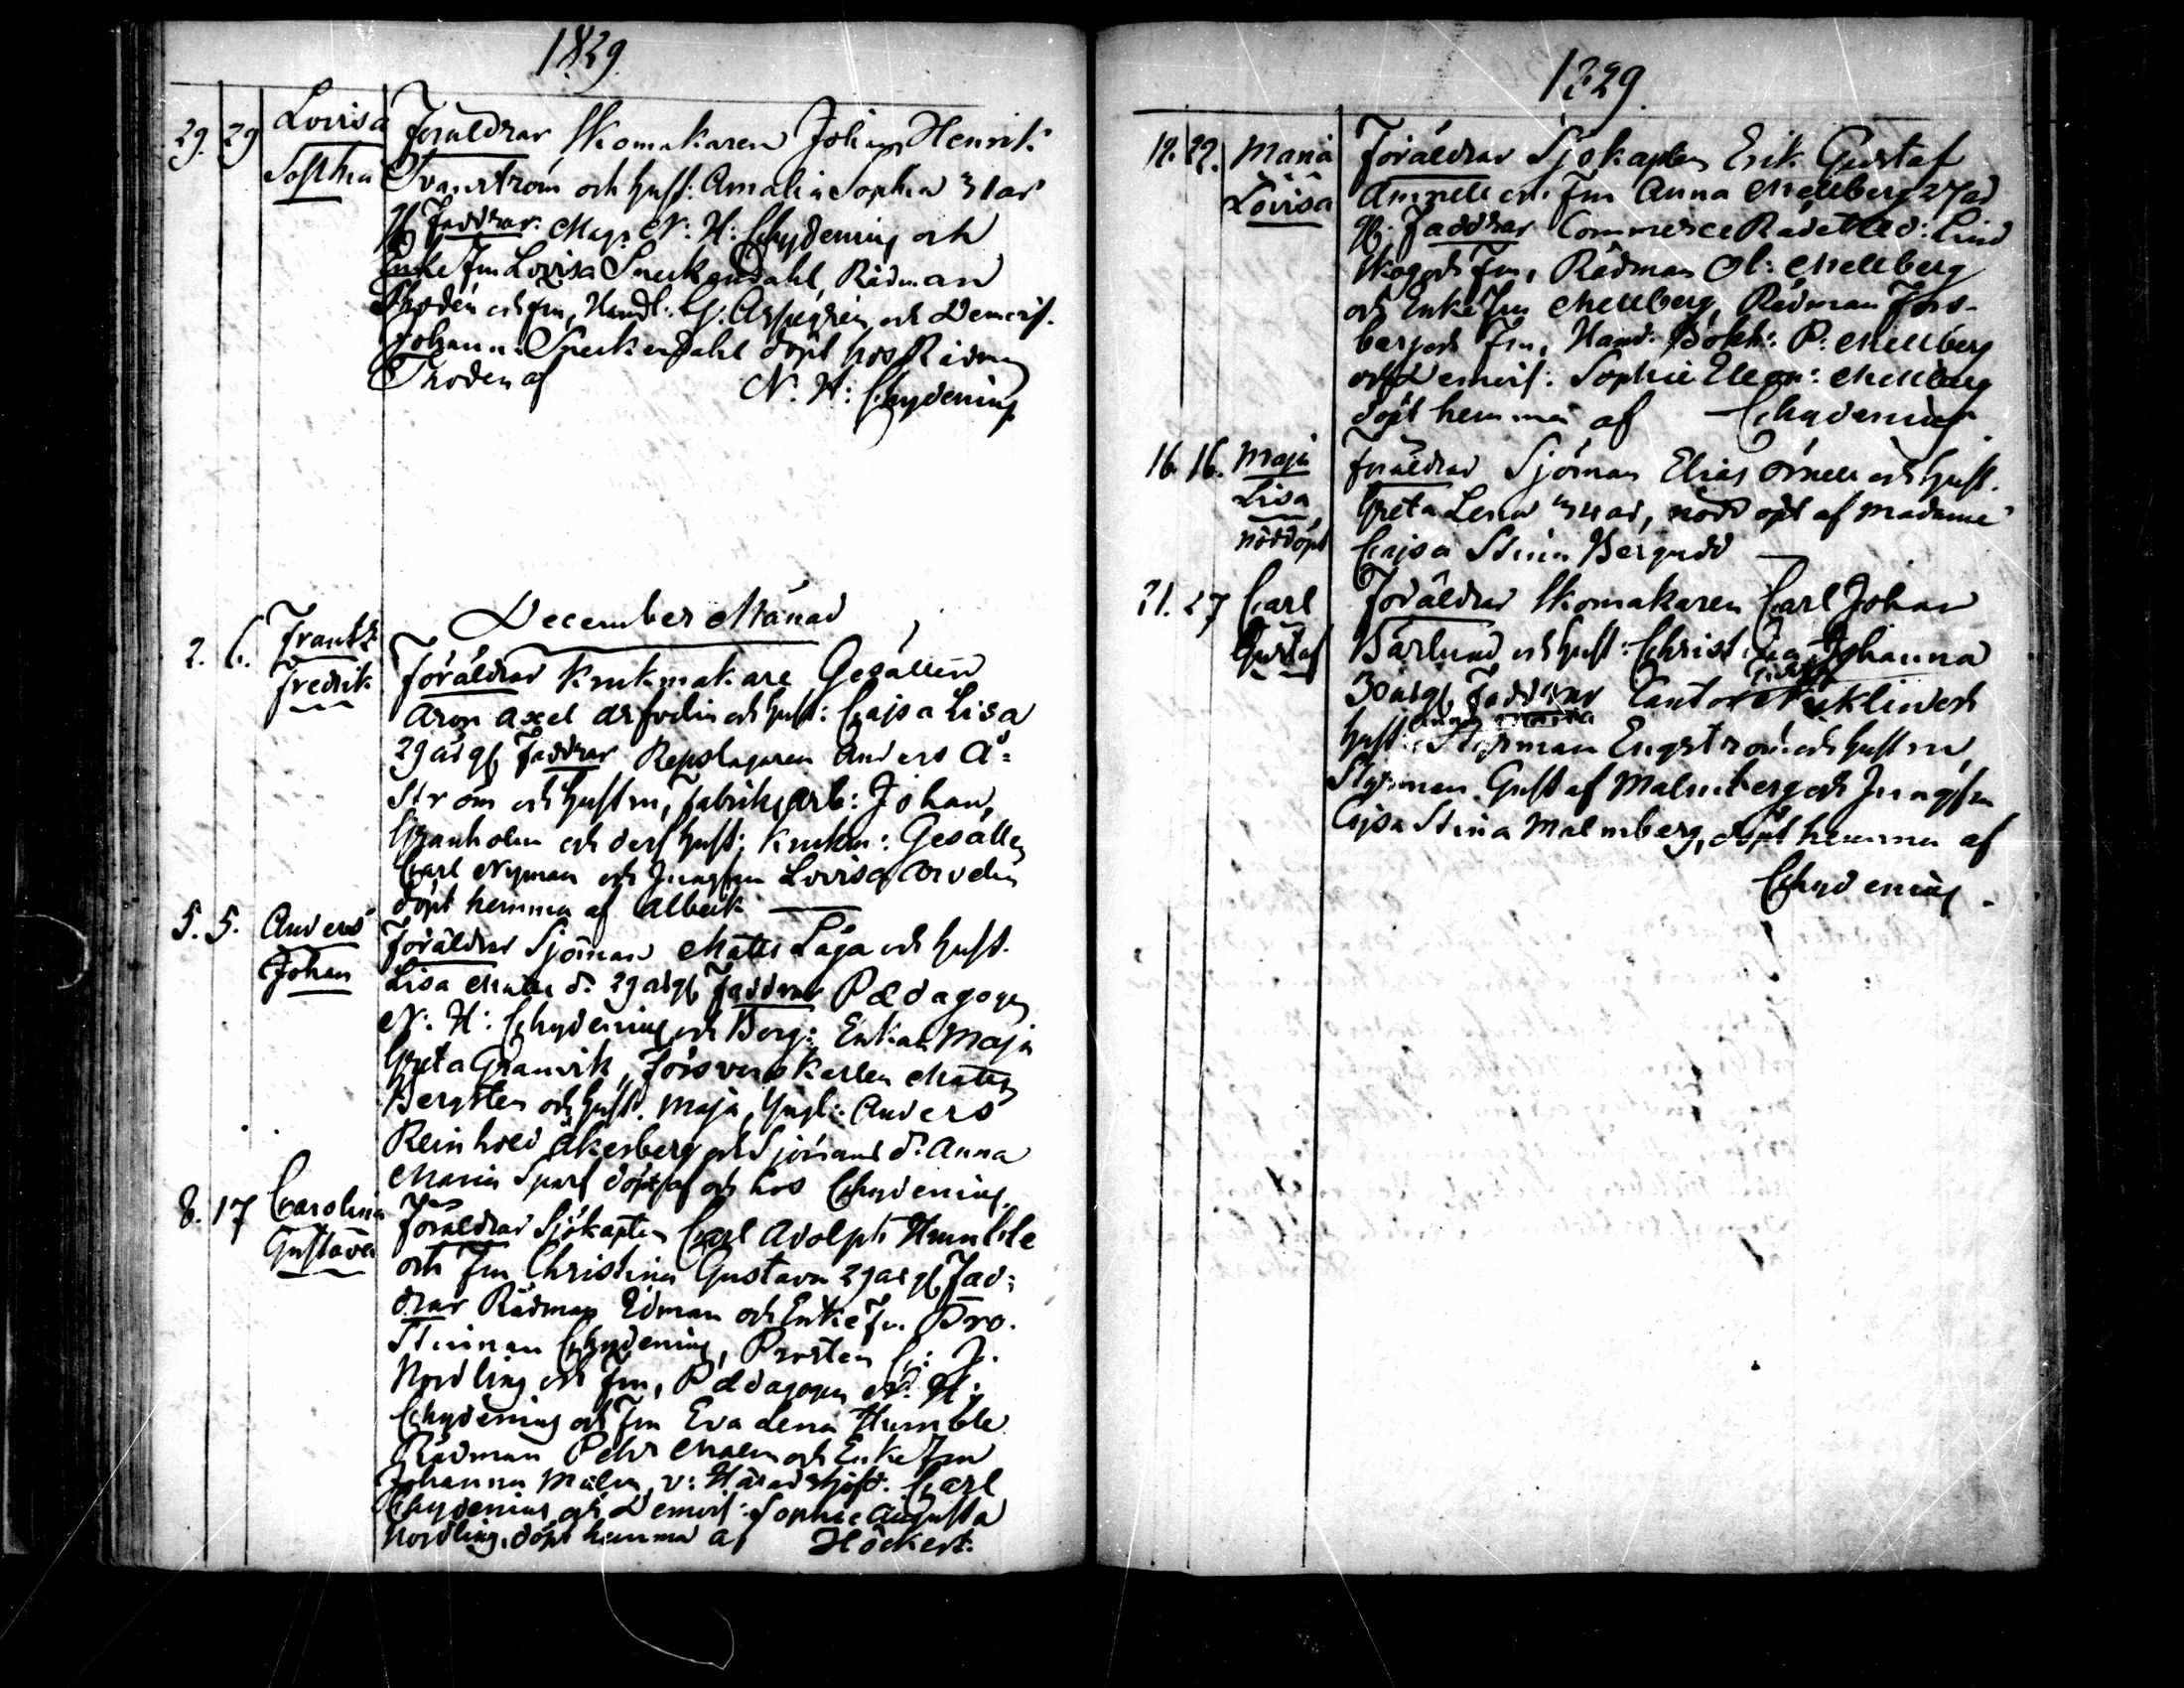 1829.
29. 29 Lovisa Sophia
Föräldrar Skomakaren Johan Henrik
Svanström och Hust: Amalia Sophia 31 år
gl. Faddrar: Mag: N: H: Chydenius och
Enke Fru Lovisa Sneckendahl, Rådman
Thodén och Fru, Handl: G. Aspegrén och Demois.
Johanna Sneckendahl döpt hos Rådman
Thoden af N. H: Chydenius
December Månad
2. 6. Frantz Fredrik
Föräldrar Krukmakare Gesällen
Aron Axel Arfvelin och Hust: Cajsa Lisa
29 år gl. Faddrar Repslagaren Anders Å=
ström och Hustru, Fabriks Arb: Johan
Granholm och dess Hust: Krukm: Gesällen
Carl Nyman och Jungfru Lovisa Arvelin
döpt hemma af Albeck
5. 5. Anders Johan
Föräldrar Sjöman Matts Låga och Hust.
Lisa Matts d. 29 år gl. Faddrar Pædagogen
N: H: Chydenius och Borg: Enkan Maja
Greta Granvik, Försvarskarlen Matts
Bergsten och Hust. Maja, Yngl: Anders
Reinhold Åkerberg och Sjömans d. Anna
Maria Sparf döpt af och hos Chydenius.
8. 17 Carolina Gustava
Föräldrar Sjökapten Carl Adolph Humble
och Fru Christina Gustava 29 år gl. Fad=
drar Rådman Edman och Enke Fru Pro.
stinnan Chydenius, Prosten C: J.
Nordling och Fru, Pædagogen N. H:
Chydenius och Fru Eva Lena Humble
Rådman Pehr Malm och Enke Fru
Johanna Malm, v: Häradshöfd. Carl
Chydenius och Demois: Sophie Augusta
Nordling, döpt hemma af Höckert.
1829.
12. 22. Maria Lovisa
Föräldrar Sjökapten Erik Gustaf
och Fru Anna Mellberg 27 år
gl: Faddrar Commerce Rådet And: Lind
skog och Fru, Rådman Ol: Mellberg
och Enke Fru Mellberg, Rådman Fors-
berg och Fru, Hand: Bokh: P. Mellberg
och Demois: Sophie Eleon: Mellberg
döpt hemma af Chydenius.
16. 16. Maja Lisa nöddöpt
Föräldrar Sjöman Elias Örnell och Hust.
Greta Lena 34 år, nöddöpt af Madame
Cajsa Stina Bergudd
21. 27 Carl Gustaf
Föräldrar Skomakaren Carl Johan
Bärlund och Hust: Christina Johanna
30 år gl. Faddrar Cantor Niklin och
Hust: Styrman Engström och Hustru,
Styrman Gustaf Malmberg och Jungfru
Cajsa Stina Malmberg, döpt hemma af
Chydenius.